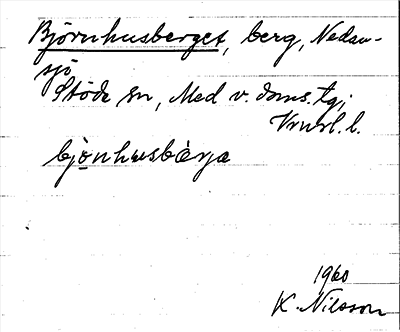 Björnhusberget, berg, Nedan-
sjö
Stöde sn, Med v. doms. tg;
l.
bjo̲nhusbärja
1960
K. Nilsson